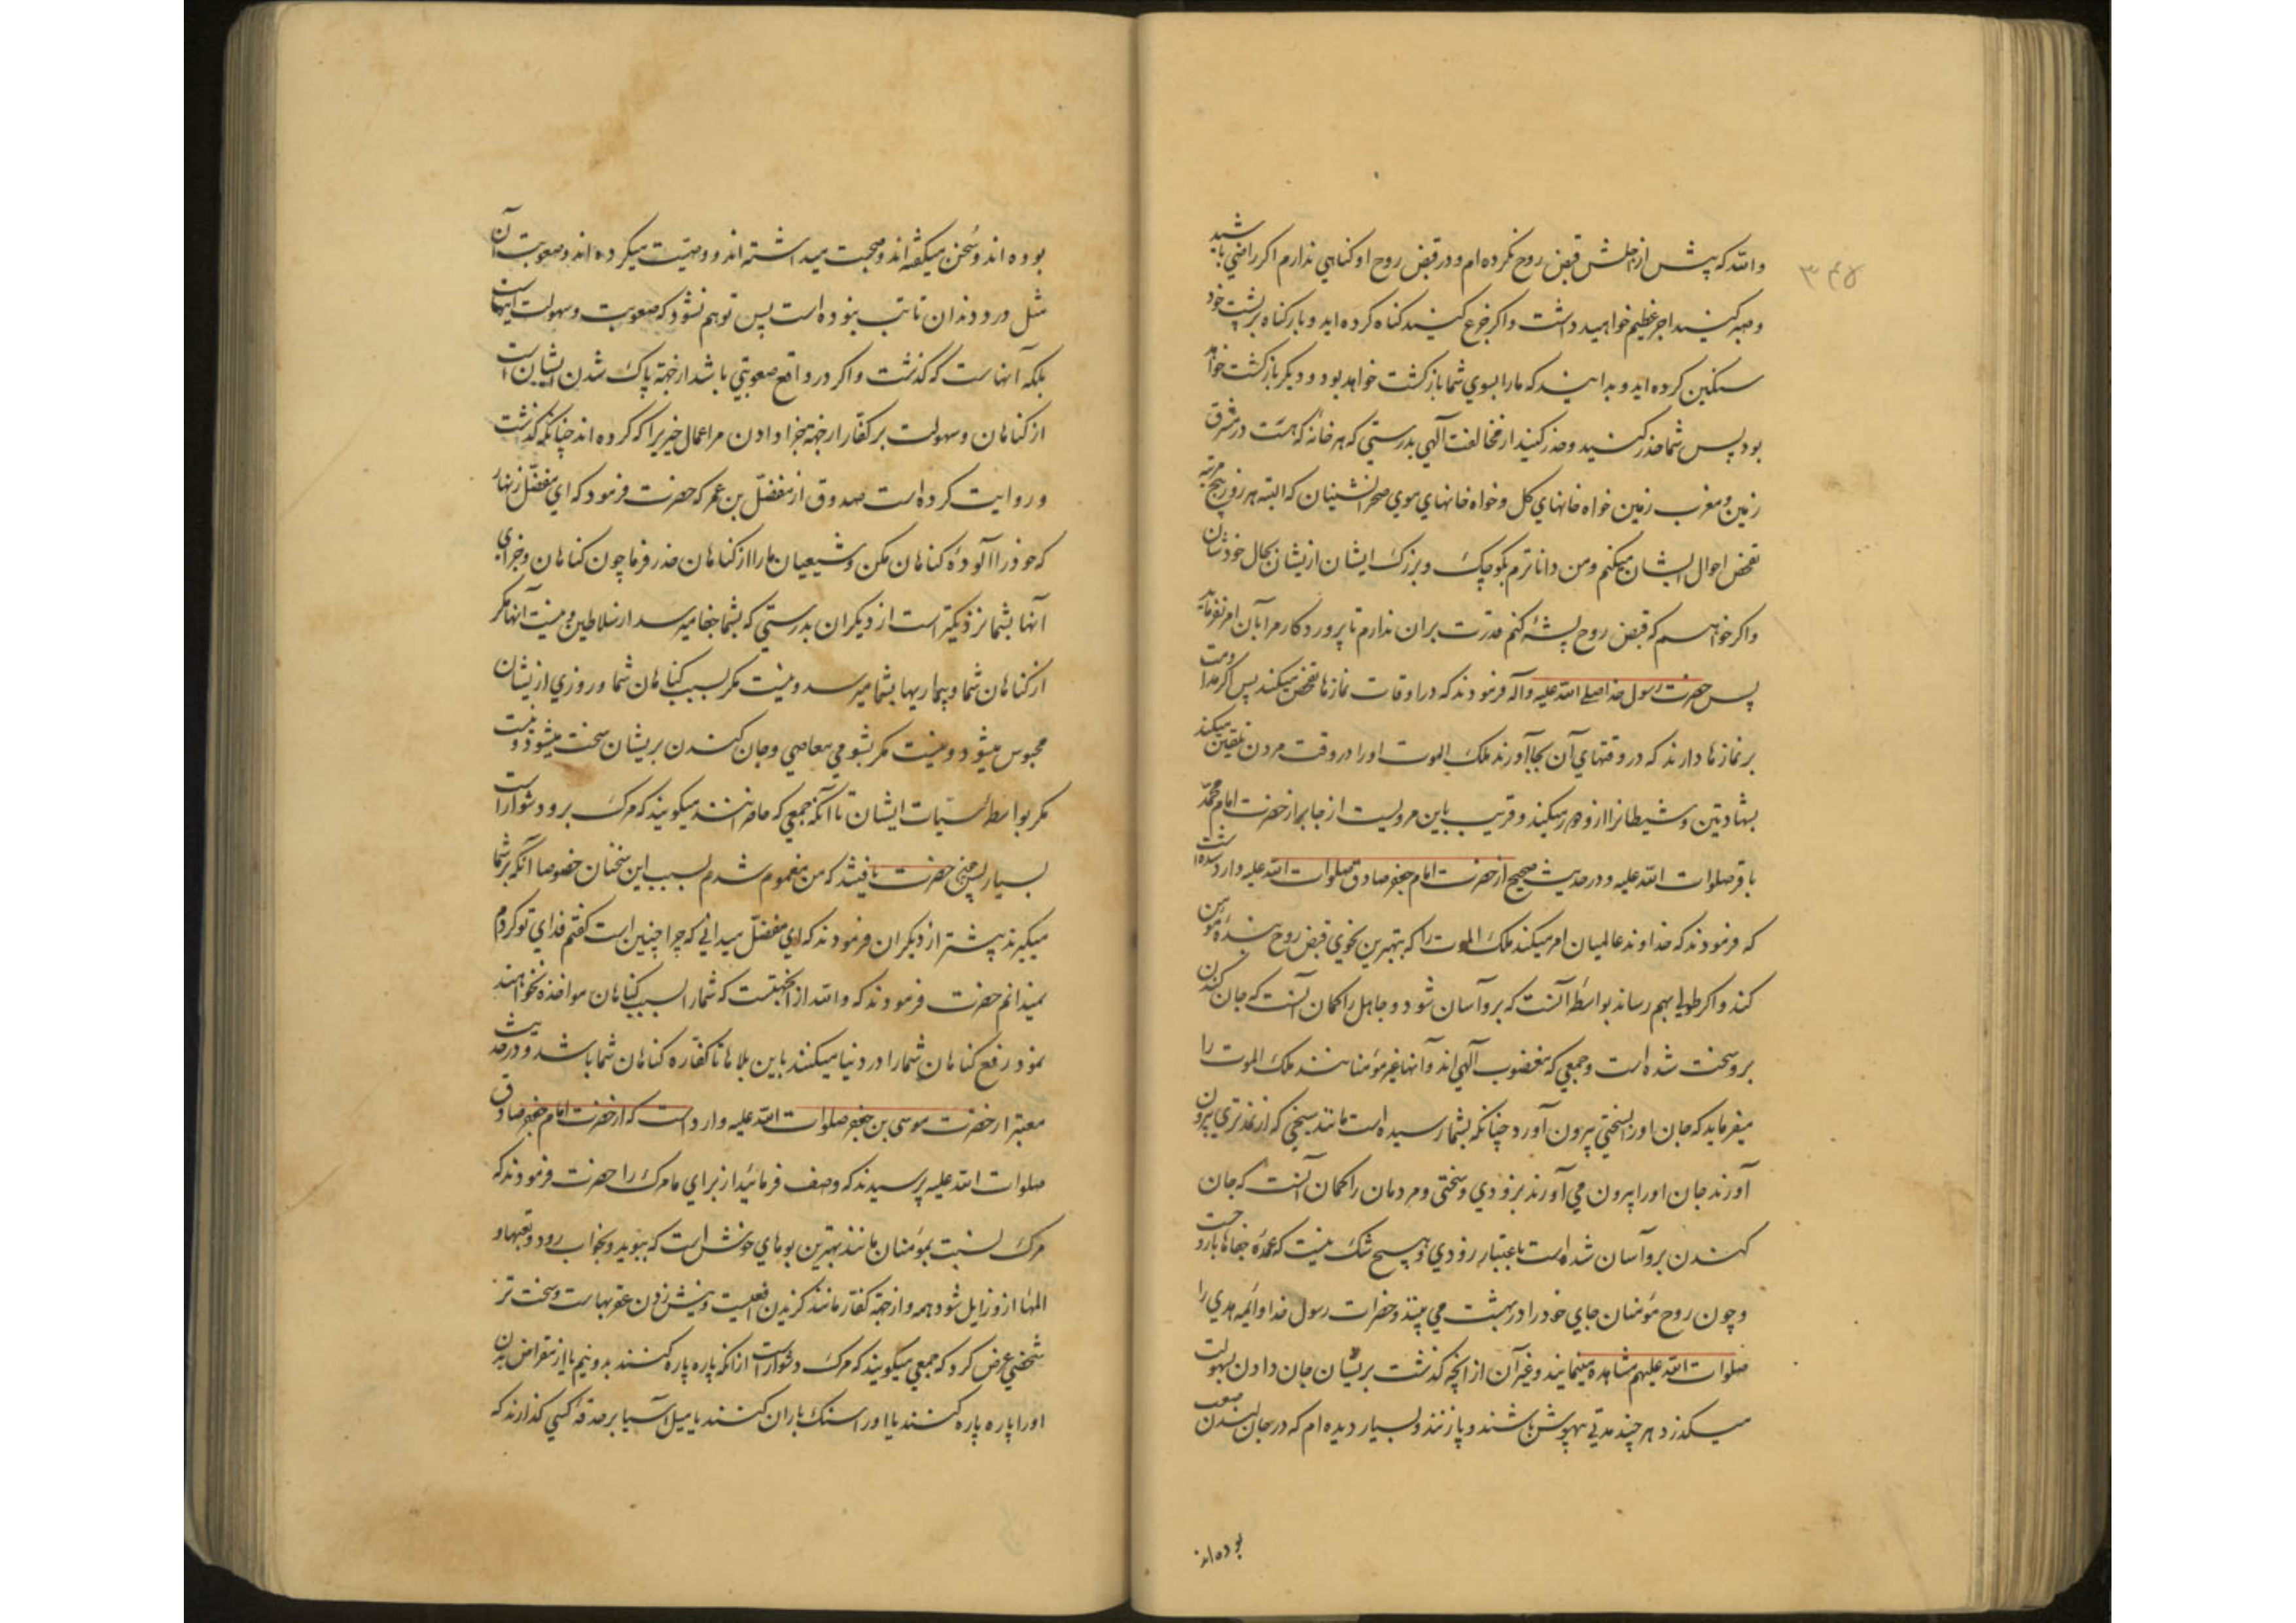 ۳۴۵
والله که پیش از اجلش قبض روح نکرده ام و در قبض روح او کناهي ندارم اکر راضي باشید
و صبر کنید اجر عظیم خواهید داشت و اکر جزع کنید کناه کرده اید و بار کناه بر پشت خود
سنکین کرده اید و بدانید که ما را بسوي شما بازکشت خواهد بود و دیکر بازکشت خواهد
بود پس شما حذر کنید و حذر کنید از مخالفت آلهي بدرستي که هر خانۀ که هست در مشرق
زمین و مغرب زمین خواه خانهاي کل و خواه خانهاي موي صحرانشینان که البته هر روز پنج مرتبه
تفحص احوال ایشان میکنم و من داناترم بکوچک و بزرک ایشان از یشان بحال خودشان
و اکر خواهم که قبض روح پشۀ کنم قدرت بران ندارم تا پروردکار مرا بآن امر نفرماید
پس حضرت رسول خدا صلی الله علیه وآله فرمودند که در اوقات نمازها تفحص میکند پس اکر مداومت
بر نمازها دارند که در وقتهاي آن بجا آورند ملک الموت او را در وقت مردن تلقین میکند
بشهادتین و شیطانرا ازو دور میکند و قریب باین مرویست از جابر از حضرت امام محمد
باقر صلوات الله علیه و در حدیث صحیح از حضرت امام جعفر صادق صلوات الله علیه وارد شده است
که فرمودند که خداوند عالمیان امر میکند ملک الموت را که بهترین نحوي قبض روح بنده مؤمن
کند و اکر طولي بهم رساند بواسطۀ آنست که برو آسان شود و جاهل را کمان آنست که جان کندن
برو سخت شده است و جمعي که مغضوب آلهي اند و آنها غیر مؤمنانند ملک الموت را
میفرماید که جان او را بسختي بیرون آورد چنانکه بشما رسیده است مانند سیخي که از نمد تري بیرون
آورند جان او را بیرون مي آورند بزودي و سختي و مردمان را کمان آنست که جان
کندن برو آسان شده است باعتبار زودي و هیچ شک نیست که عمدۀ جفاها باروحست
و چون روح مؤمنان جاي خود را در بهشت مي بیند و حضرات رسول خدا و ائمه هدي را
صلوات الله علیهم مشاهده مینمایند و غیر آن از آنچه کذشت بریشان جان دادن بسهولت
میکذرد هر چند مدتي بیهوش باشند و پا زنند و بسیار دیده ام که در جان کندن صعب
بوده اند
بوده اند و سخن میکفته اند و صحبت میداشته اند و وصیت میکرده اند و صعوبت آن
مثل درد دندان تا تب نبوده است پس توهم نشود که صعوبت و سهولت اینهاست
بلکه آنهاست که کذشت و اکر در واقع صعوبتي باشد از جهة پاک شدن ایشان است
از کناهان و سهولت بر کفار از جهة جزا دادن مر اعمال خیریرا که کرده اند چنانکه کذشت
و روایت کرده است صدوق از مفضل بن عمر که حضرت فرمود که اي مفضل زنهار
که خود را آلودۀ کناهان مکن و شیعیان ما را از کناهان حذر فرما چون کناهان و جزاي
آنها بشما نزدیکتر است از دیکران بدرستي که بشما جفا میرسد از سلاطین و نیست آنها مکر
از کناهان شما و بیماریها بشما میرسد و نیست مکر بسبب کناهان شما و روزي از یشان
محبوس میشود و نیست مکر بشومي معاصي و جان کندن بریشان سخت میشود و نیست
مکر بواسطۀ سیئات ایشان تا آنکه جمعي که حاضرانند میکویند که مرک برو دشوار است
بسیار پس چون حضرت یافتند که من مغموم شدم بسبب این سخنان خصوصا آنکه بر شما
میکیرند پیشتر از دیکران فرمودند که اي مفضل میداني که چرا چنین است کفتم فداي تو کردم
نمیدانم حضرت فرمودند که والله از انجهتست که شما را بسبب کناهان مواخذه نخواهند
نمود و رفع کناهان شما را در دنیا میکنند باین بلاها تا کفاره کناهان شما باشد و در حدیث
معتبر از حضرت موسی بن جعفر صلوات الله علیه وارد است که از حضرت امام جعفر صادق
صلوات الله علیه پرسیدند که وصف فرمائید از براي ما مرک را حضرت فرمودند که
مرک نسبت بمؤمنان مانند بهترین بوهاي خوش است که ببوید و بخواب رود و تعبها و
المها ازو زایل شود همه و از جهة کفار مانند کزیدن افعیست و نیش زدن عقربهاست و سخت تر
شخصي عرض کرد که جمعي میکویند که مرک دشوار است از آنکه پاره پاره کنند بدو نیم یا از مقراض بدن
او را پاره پاره کنند یا او را سنک باران کنند یا میل آسیا بر حدقۀ کسي کذارند که